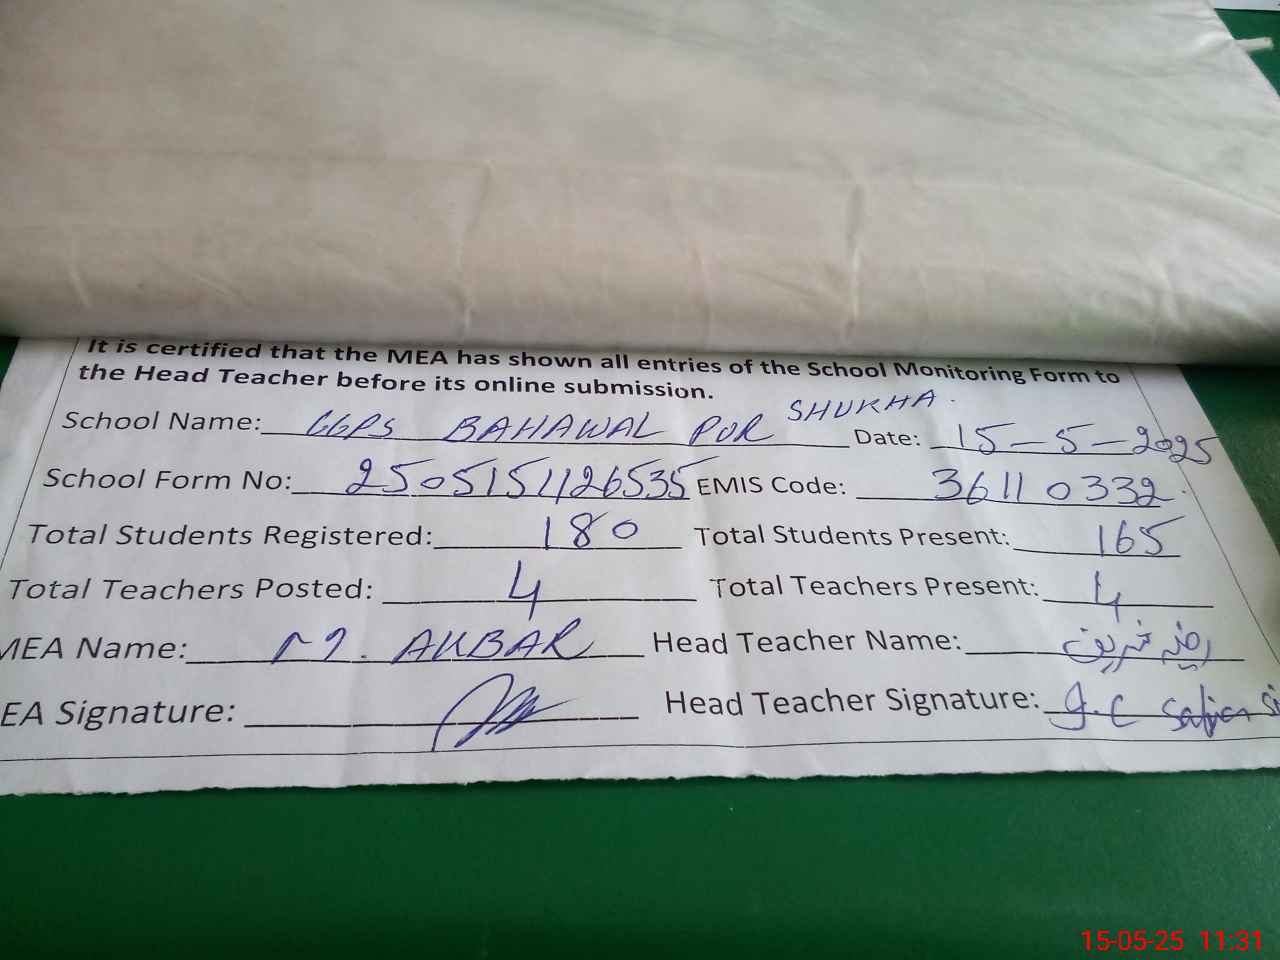 It is certified that the MEA has shown all entries of the School Monitoring Form to
the Head Teacher before its online submission.
School Name: GGPS BAHAWAL PUR SHUKHA. Date: 15-5-2025
School Form No: 2505151126535 EMIS Code: 36110332
Total Students Registered: 180 Total Students Present: 165
Total Teachers Posted: 4 Total Teachers Present: 4
MEA Name: M. AKBAR Head Teacher Name:
EA Signature: Head Teacher Signature: J.C
15-05-25 11:31